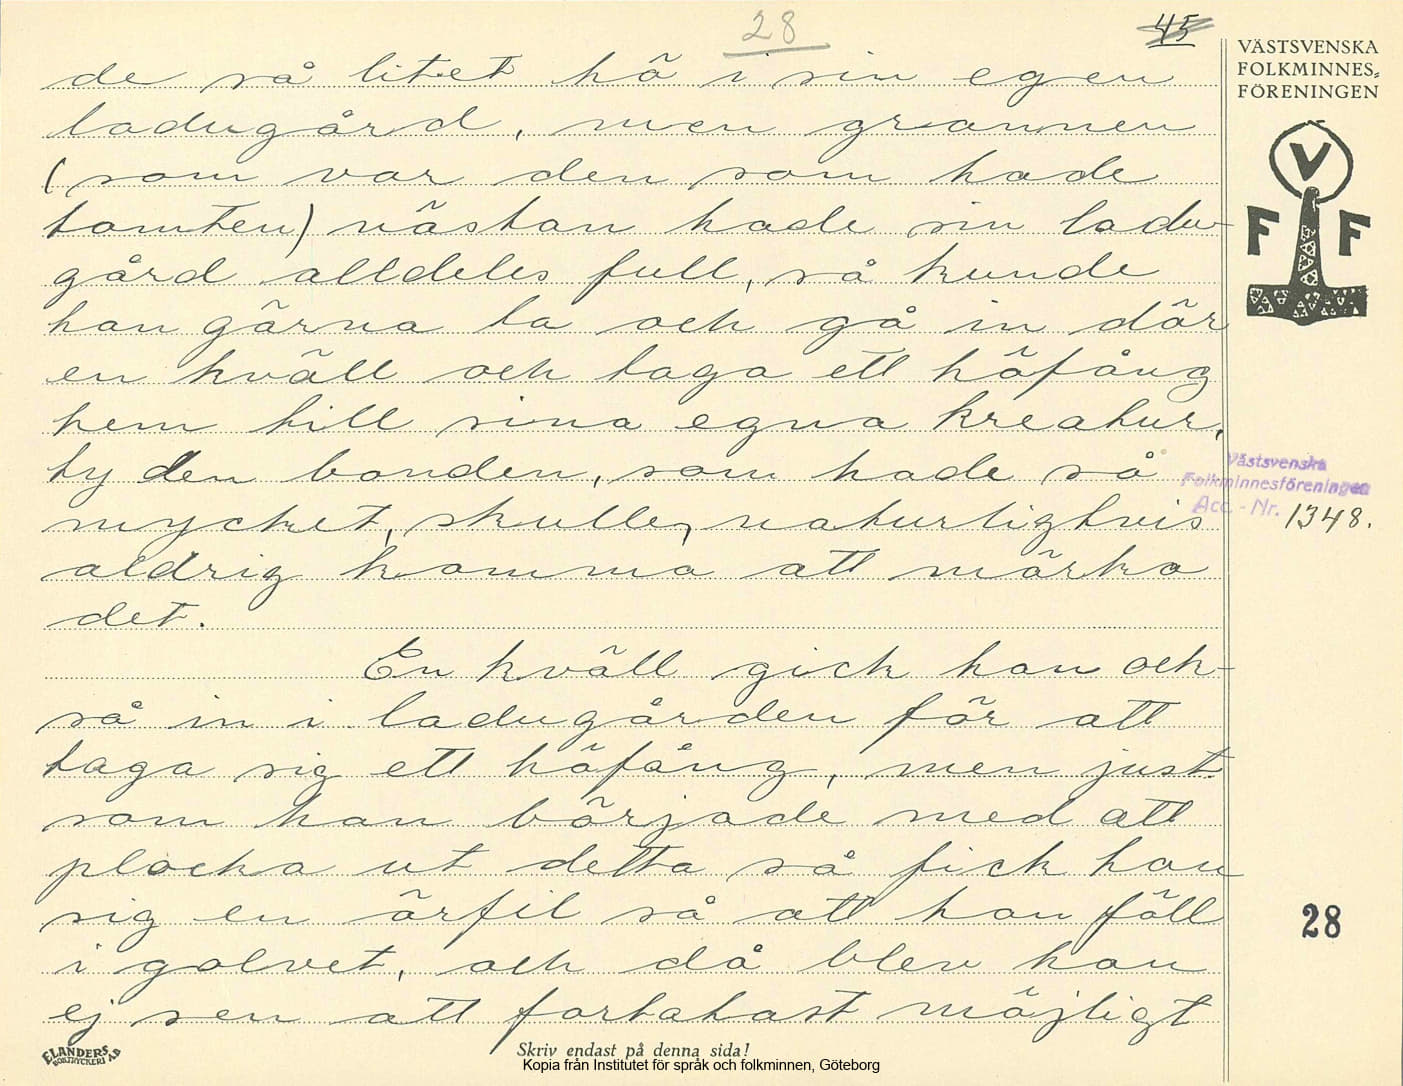 28
45
de så litet hö i sin egen
ladugård, men grannen
(som var den som hade
tomten) nästan hade sin ladu-
gård alldeles full, så kunde
han gärna ta och gå in där
en kväll och taga ett höfång
hem till sina egna kreatur,
ty den bonden, som hade så
mycket, skulle, naturligtvis
aldrig komma att märka
det.
En kväll gick han ock-
så in i ladugården för att
taga sig ett höfång, men just
som han började med att
plocka ut detta så fick han
sig en örfil så att han föll
i golvet, och då blev han
ej sen att fortahast möjligt
VÄSTSVENSKA
FOLKMINNES-
FÖRENINGEN
V
F F
Västsvenska
Folkminnesföreningen
Acc. - Nr. 1348.
28
ELANDERS
BOKTRYCKERI AB
Skriv endast på denna sida!
Kopia från Institutet för språk och folkminnen, Göteborg